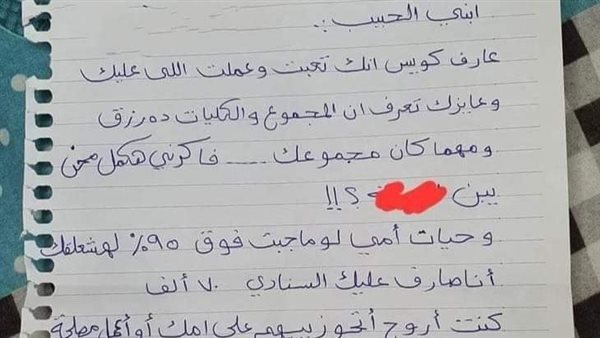 ابني الحبيب ..
عارف كويس انك تعبت وعملت اللى عليك
وعايزك تعرف ان المجموع والكليات ده رزق
ومهما كان مجموعك ..... فاكرني هكمل محن
يبن ؟!!
وحيات أمي لو ماجبت فوق ٩٥% لهشعلقك
أنا صارف عليك السنادي ٧٠ ألف
كنت أروح أتجوز بيهم على امك أو أعمل مصلحة